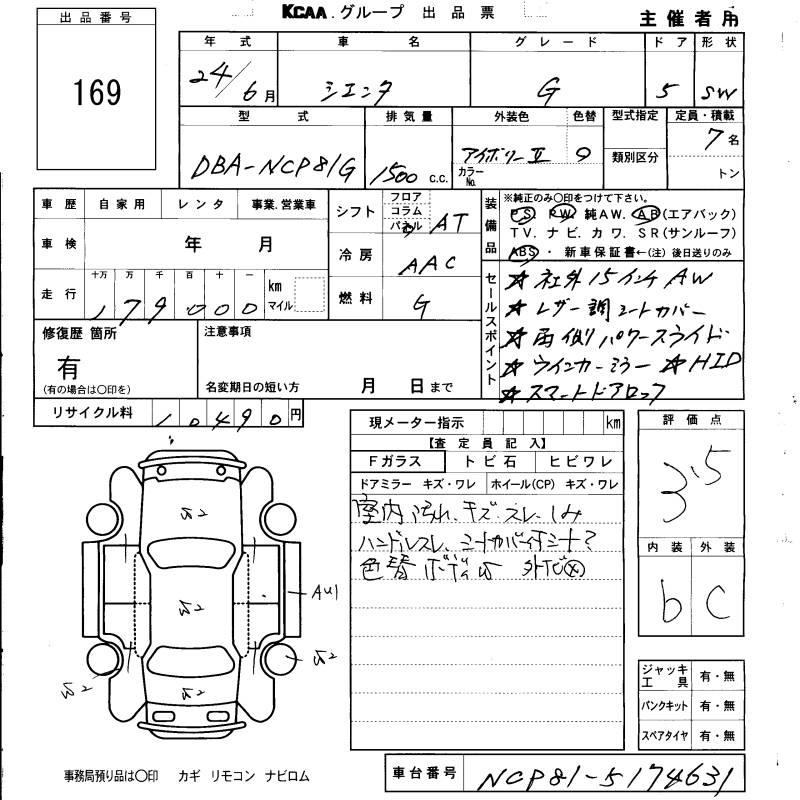 出品番号
169
KCAA.グループ 出品票
主催者用
年式 車名 グレード ドア 形状
24/6月 シエンタ G 5 SW
型式 排気量 外装色 色替 型式指定 定員・積載
DBA-NCP81G 1500 c.c. アイボリーII 9 カラーNo. 類別区分 7名 トン
車歴 自家用 レンタ 事業.営業車
車検 年 月
走行 十万 万 千 百 十 一 km マイル
179000
シフト フロア コラム パネル AT
冷房 AAC
燃料 G
装備品
※純正のみ○印をつけて下さい。
PS PW 純AW. AB(エアバック)
TV. ナビ. カワ. SR(サンルーフ)
ABS・ 新車保証書←(注)後日送りのみ
セールスポイント
☆ 社外15インチAW
☆ レザー調シートカバー
☆ 両側パワースライド
☆ ウインカーミラー ☆ HID
☆ スマートドアロック
修復歴 箇所
有
(有の場合は○印を)
注意事項
名変期日の短い方 月 日まで
リサイクル料 10490円
現メーター指示 km
【査定員記入】
Fガラス トビ石 ヒビワレ
ドアミラー キズ・ワレ ホイール(CP) キズ・ワレ
室内汚れ、キズ・スレ・しみ
ハンドルスレ、シートカバー
色替 ボディ
評価点
3.5
内装 外装
b C
AU1
ジャッキ工具 有・無
パンクキット 有・無
スペアタイヤ 有・無
事務局預り品は○印 カギ リモコン ナビロム
車台番号 NCP81-5174631